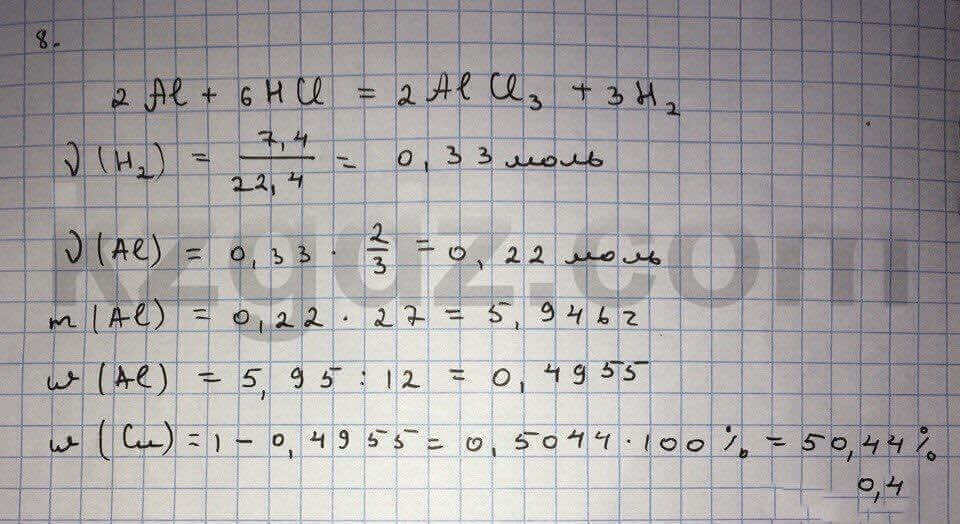 8.
2Al + 6HCl = 2AlCl₃ + 3H₂
ν(H₂) = 7,4/22,4 = 0,33 моль
ν(Al) = 0,33 · 2/3 = 0,22 моль
m(Al) = 0,22 · 27 = 5,946 г
w(Al) = 5,95 : 12 = 0,4955
w(Cu) = 1 - 0,4955 = 0,5044 · 100% = 50,44%
0,4
kzgdz.com